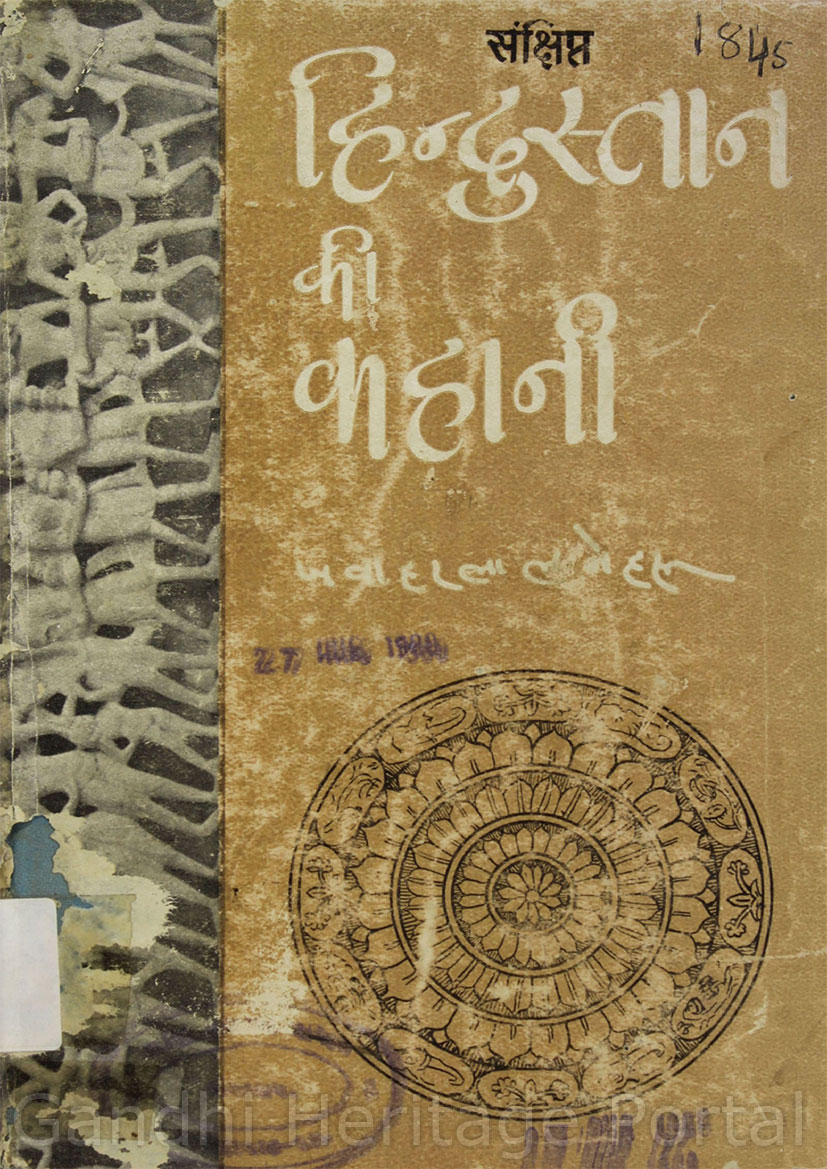 संक्षिप्त
1845
हिन्दुस्तान
की
कहानी
जवाहरलाल नेहरू
Gandhi Heritage Portal